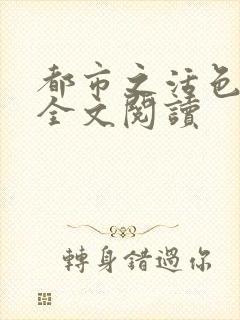 都市之活色
全文閱讀
轉身錯過你